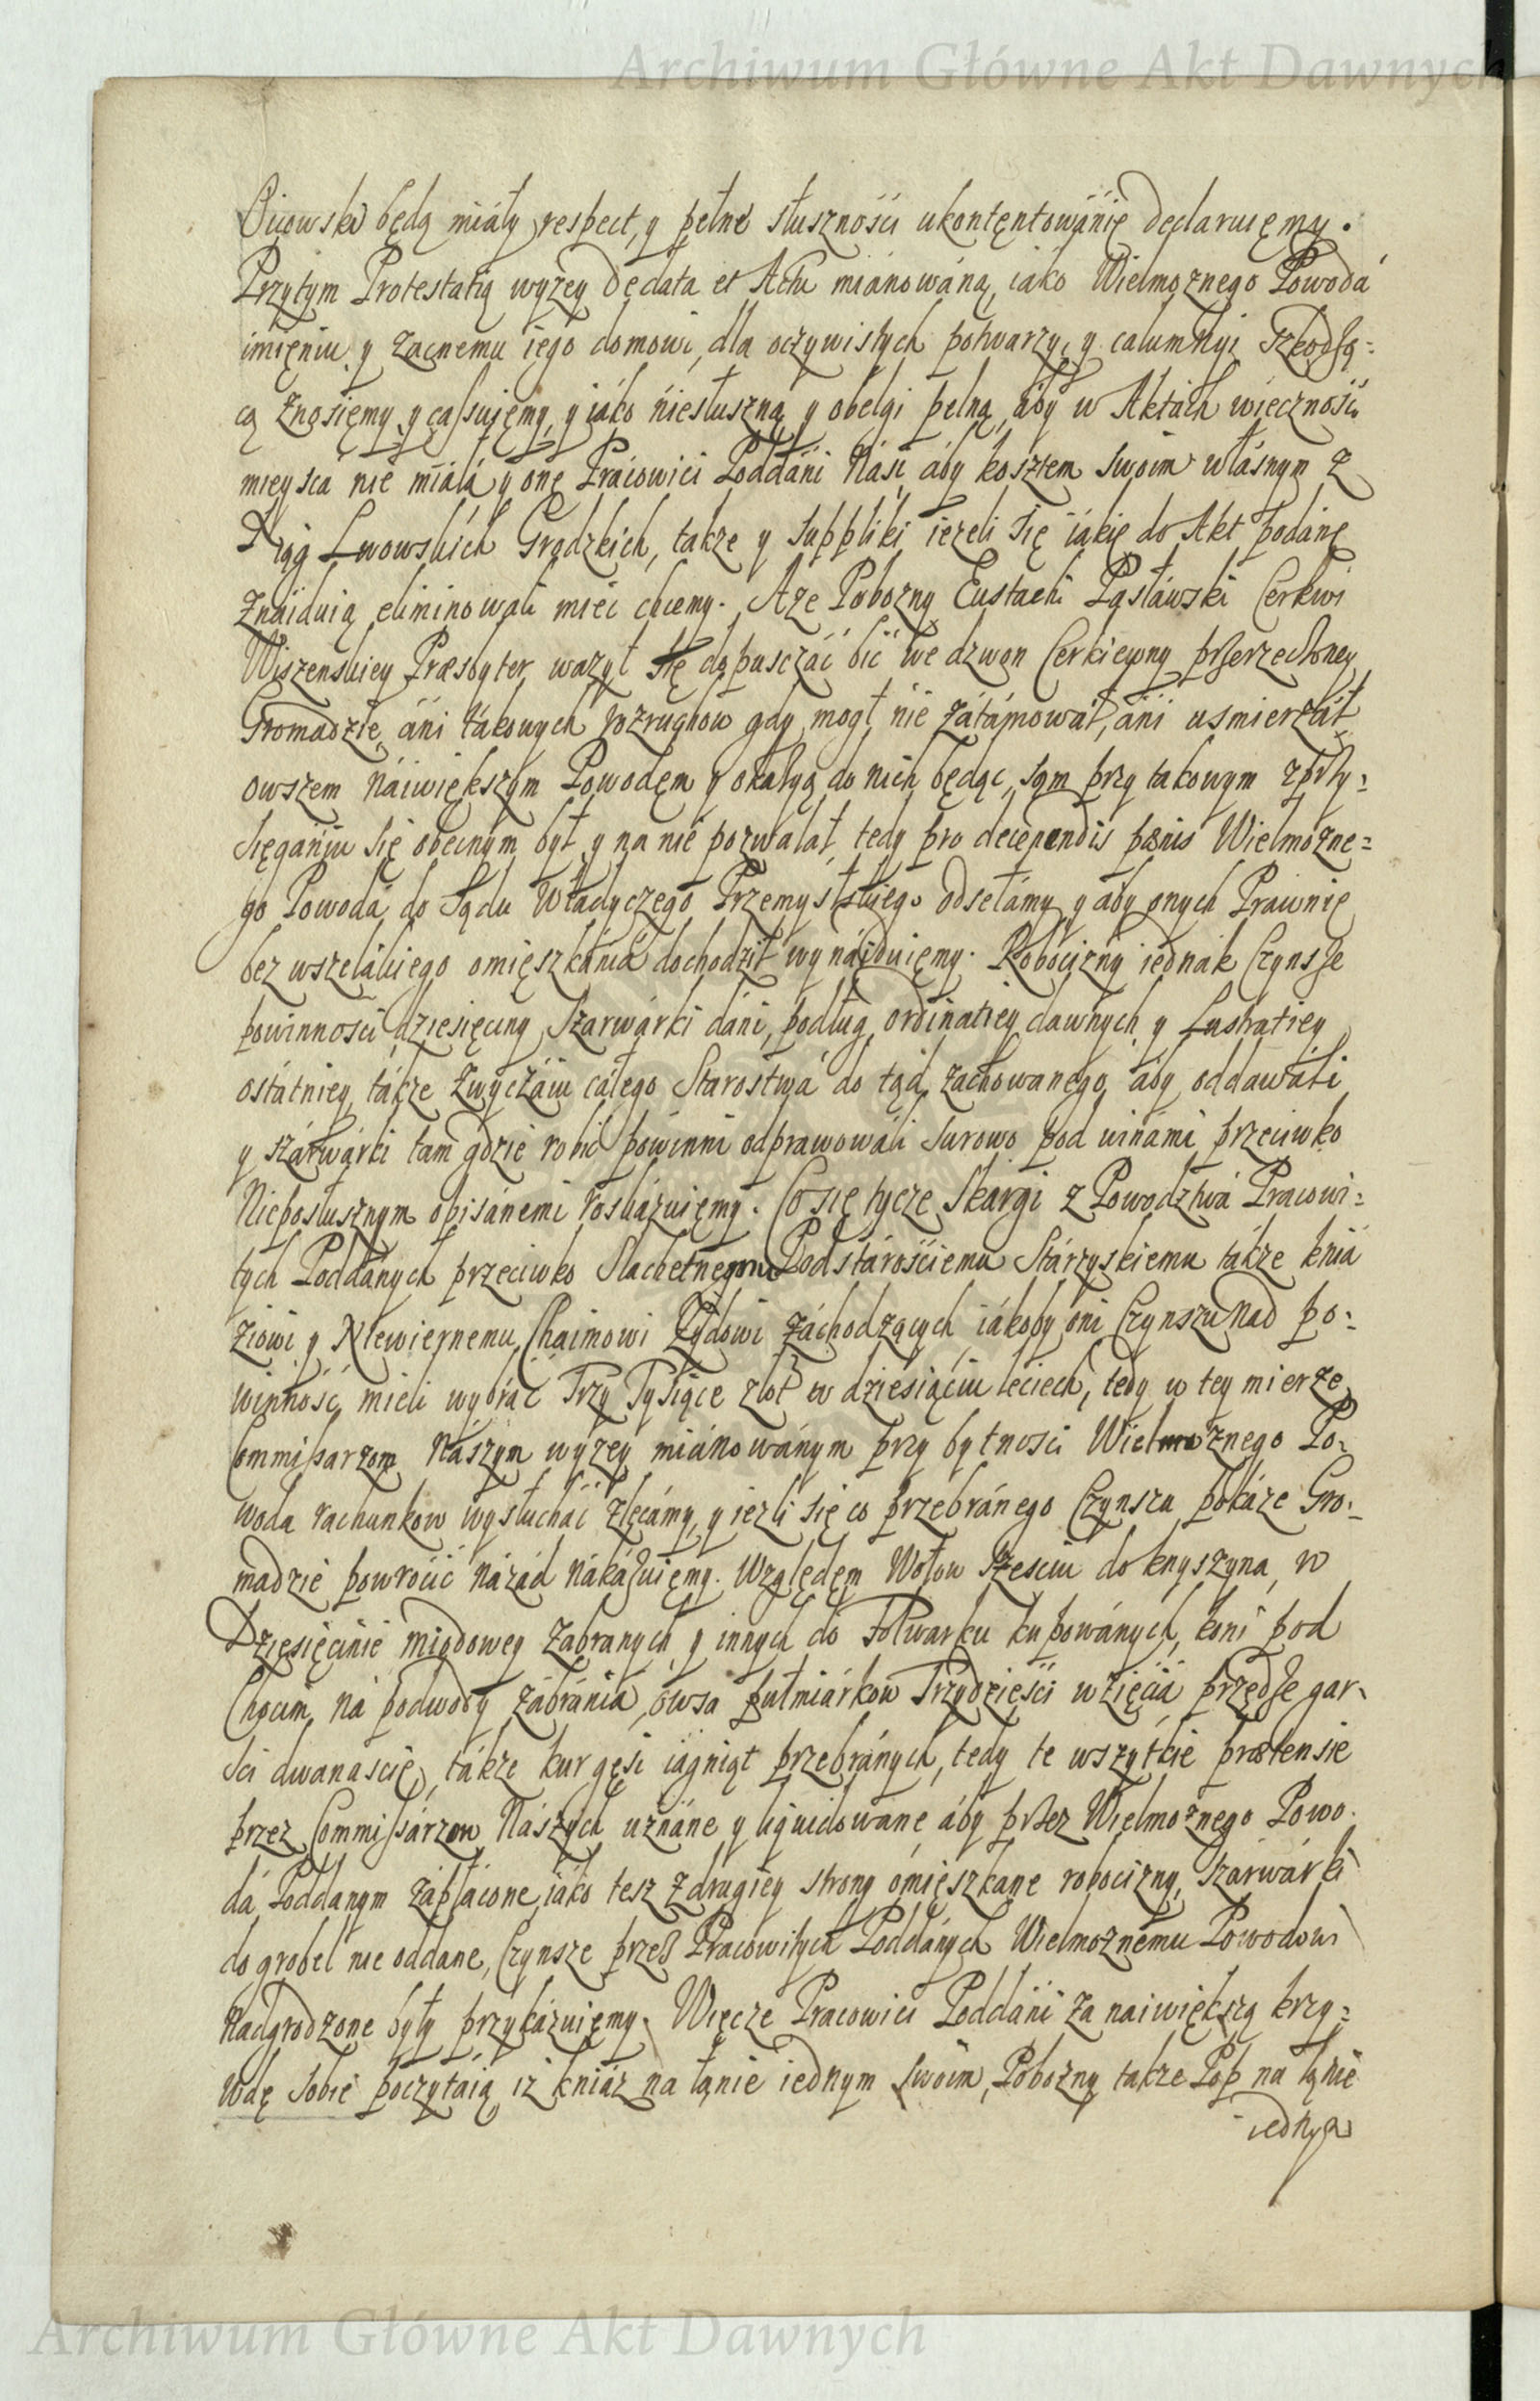 Archiwum Główne Akt Dawnych
Oycowski będą miały respect, y pełne słusznośći ukontęntowánie declaruięmy.
Przytym Protestatią wyżey de data et Actu miánowáną, iako Wielmoznego Powodá
imięniu y zacnemu iego domowi, dla oczywistych potwarzy, y calumnyi szkodzą=
cą znosięmy y cassuięmy, y iáko niesłuszną y obelgi pełną, áby w Aktách wiecznośći
mieysca nie miáłá y onę Prácowici Poddáni Náśi, áby kosztem swoim włásnym z
Xiąg Lwowskich Grodzkich, także y suppliki ieżeli się iákię do Akt podánę
znáiduią eliminowali mieć chcemy. A że Pobozny Eustachi Pasłáwski Cerkwi
Wiszenskiey Præsbyter ważył się dopusczáć bić we dzwon Cerkiewny przerzeczoney
Gromadzie, áni tákowych rozruchow gdy mogł nie zátámowáł, áni usmierzáł
owszem náiwiększym Powodęm y okazyą do nich będąc, sąm przy takowym zprzy=
sięgániu się obecnym był y na nie pozwalał, tedy pro decernendis pænis Wielmożne=
go Powodá do Sądu Władyczego Przemyslskiego odsełámy y aby onych Prawnię
bez wszelákiego omięszkánia dochodził wynáiduięmy. Robocizny iednak Czynsze
powinnosci dziesięciny szarwárki dáni, podług ordinatiey dawnych y Lustratiey
ostátniey tákże zwyczáiu cáłego Starostwá do tąd zachowanego, áby oddawáli
y szárwárki tam gdzie robić powinni odprawowáli surowo pod winámi przeciwko
Nieposłusznym opisánemi roskázuięmy. Co się tycze Skargi z Powodztwá Pracowi=
tych Poddanych przeciwko Slachetnemu Podstárościemu Stárzyskiemu tákże kniá
ziowi y Niewiernemu Chaimowi Żydowi záchodzących, iákoby oni Czynszu nad po=
winność mieli wybráć Trzy Tysiące złot w dziesiąciu leciech, tedy w tey mierze
Commissarzom Nászym wyżey miánowánym przy bytnosci Wielmożnego Po=
woda rachunkow wysłucháć zlęcámy, y iezli się co przebránego Czynszu pokáże Gro=
madzie powroćić názád nákázuięmy. Względęm Wołow sześciu do knyszyna, w
Dziesięćinie miodowey zabranych y innych do Folwarku kupowánych, koni pod
Chocim ná podwody zábránia, owsa pułmiárkow Trzydzieści wzięćia, przędze gar=
śći dwanascię, tákże kur gęśi iágniąt przebránych, tedy te wszytkie prætensie
przez Commissárzow Nászych uznáne y liquidowane, áby przez Wielmożnego Powo=
dá Poddanym zápłácone, iáko tesz z drugiey strony omięszkane robocizny, szárwárki
do grobel nie oddane, Czynsze przez Pracowitych Poddánych Wielmoznemu Powodowi
nadgrodzone były przykázuięmy. Więcze Pracowici Poddáni za naiwiększą krzy=
wdę sobie poczytáią iż kniáź na łánie iednym swoim, Pobożny także Pop na łánie
iednym
Archiwum Główne Akt Dawnych